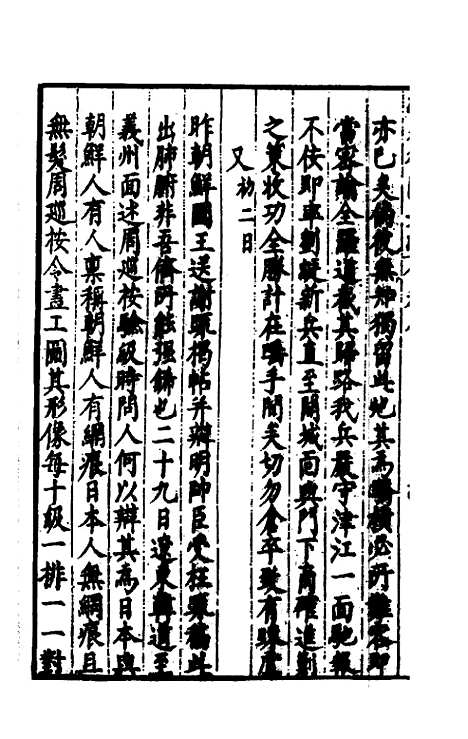 亦已矣倘彼無知獨留此地其為驕橫必所難容即
當密諭全羅道截其歸路我兵嚴守津江一面馳報
不佞即率劉綎新兵直至開城面與門下商確追剿
之策收功全勝計在嚬手間矣切勿倉卒致有疎虞
又初二日
昨朝鮮國王送謝疏揭帖并辯明帥臣受枉疏稿此
出肺腑非吾儕所能强飾也二十九日遼東韓道至
義州面述周巡按驗級時問人何以辯其為日本與
朝鮮人有人稟稱朝鮮人有網痕日本人無網痕且
無髮周巡按令畫工圖其形像每十級一排一一對